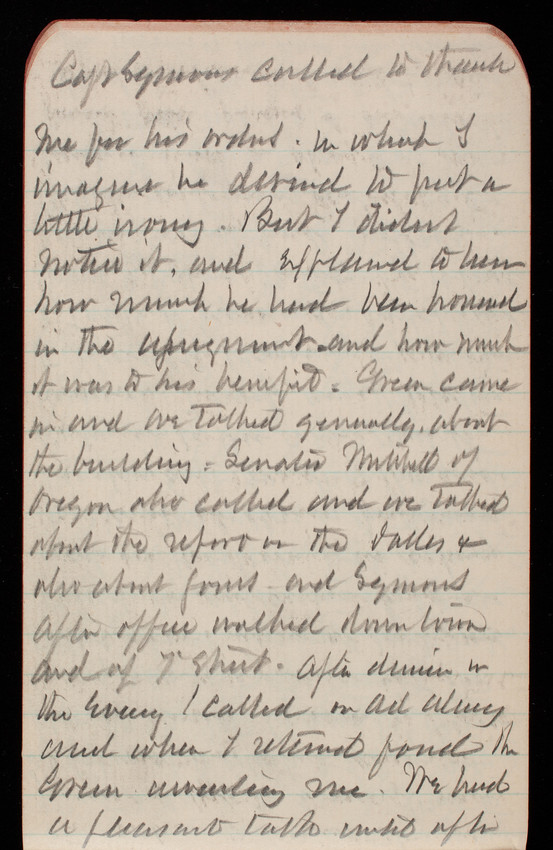 Capt Symons called to thank
me for his orders. in what I
imagine he desired to put a
little irony. But I didnt
notice it, and explained to him
how much he had been honored
in the assignment and how much
it was to his benefit = Green came
in and we talked generally, about
the building = Senator Mitchell of
Oregon also called and we talked
about the report on the Dalles &
also about and Symons
After office walked down town
and up F Street. After dinner in
the Eveng I called on
and when I returned found
Green awaiting me. We had
a pleasant talk until after